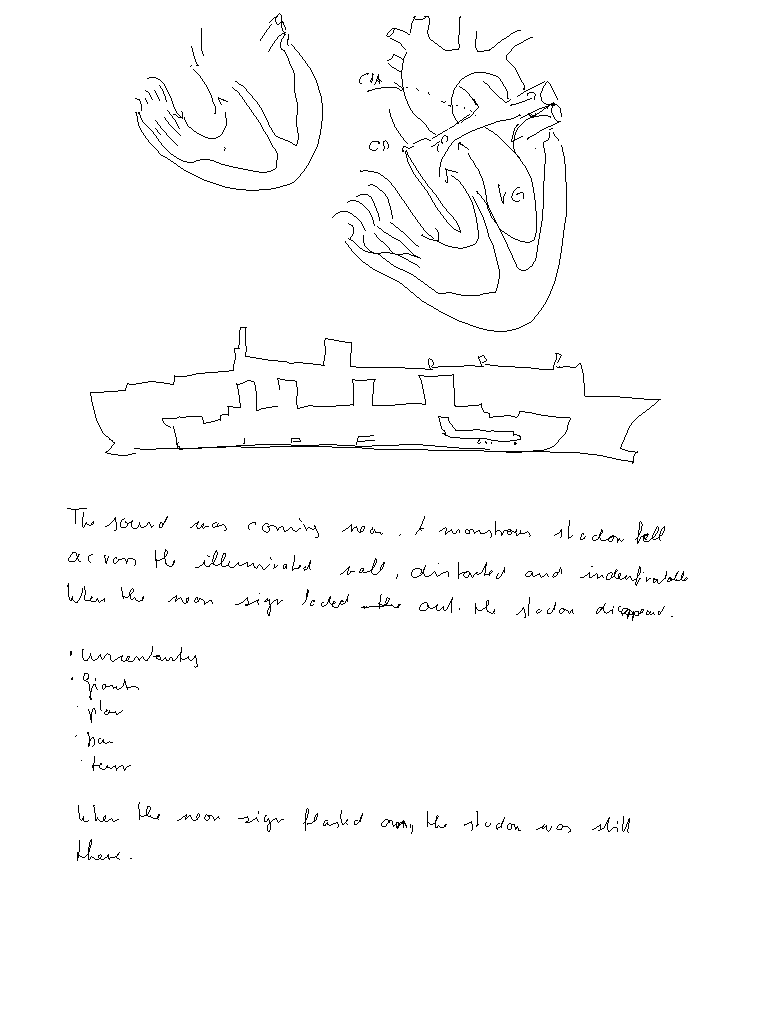 CIA
CD
VG
The sound was coming near. A monstrous shadow fell
across the illuminated wall, distorted and
When the neon sign faded the out. the shadow disappeard.
• uncertainty
• Giants
• plan
•
•
When the neon sign flashed away the shadow was still
there.